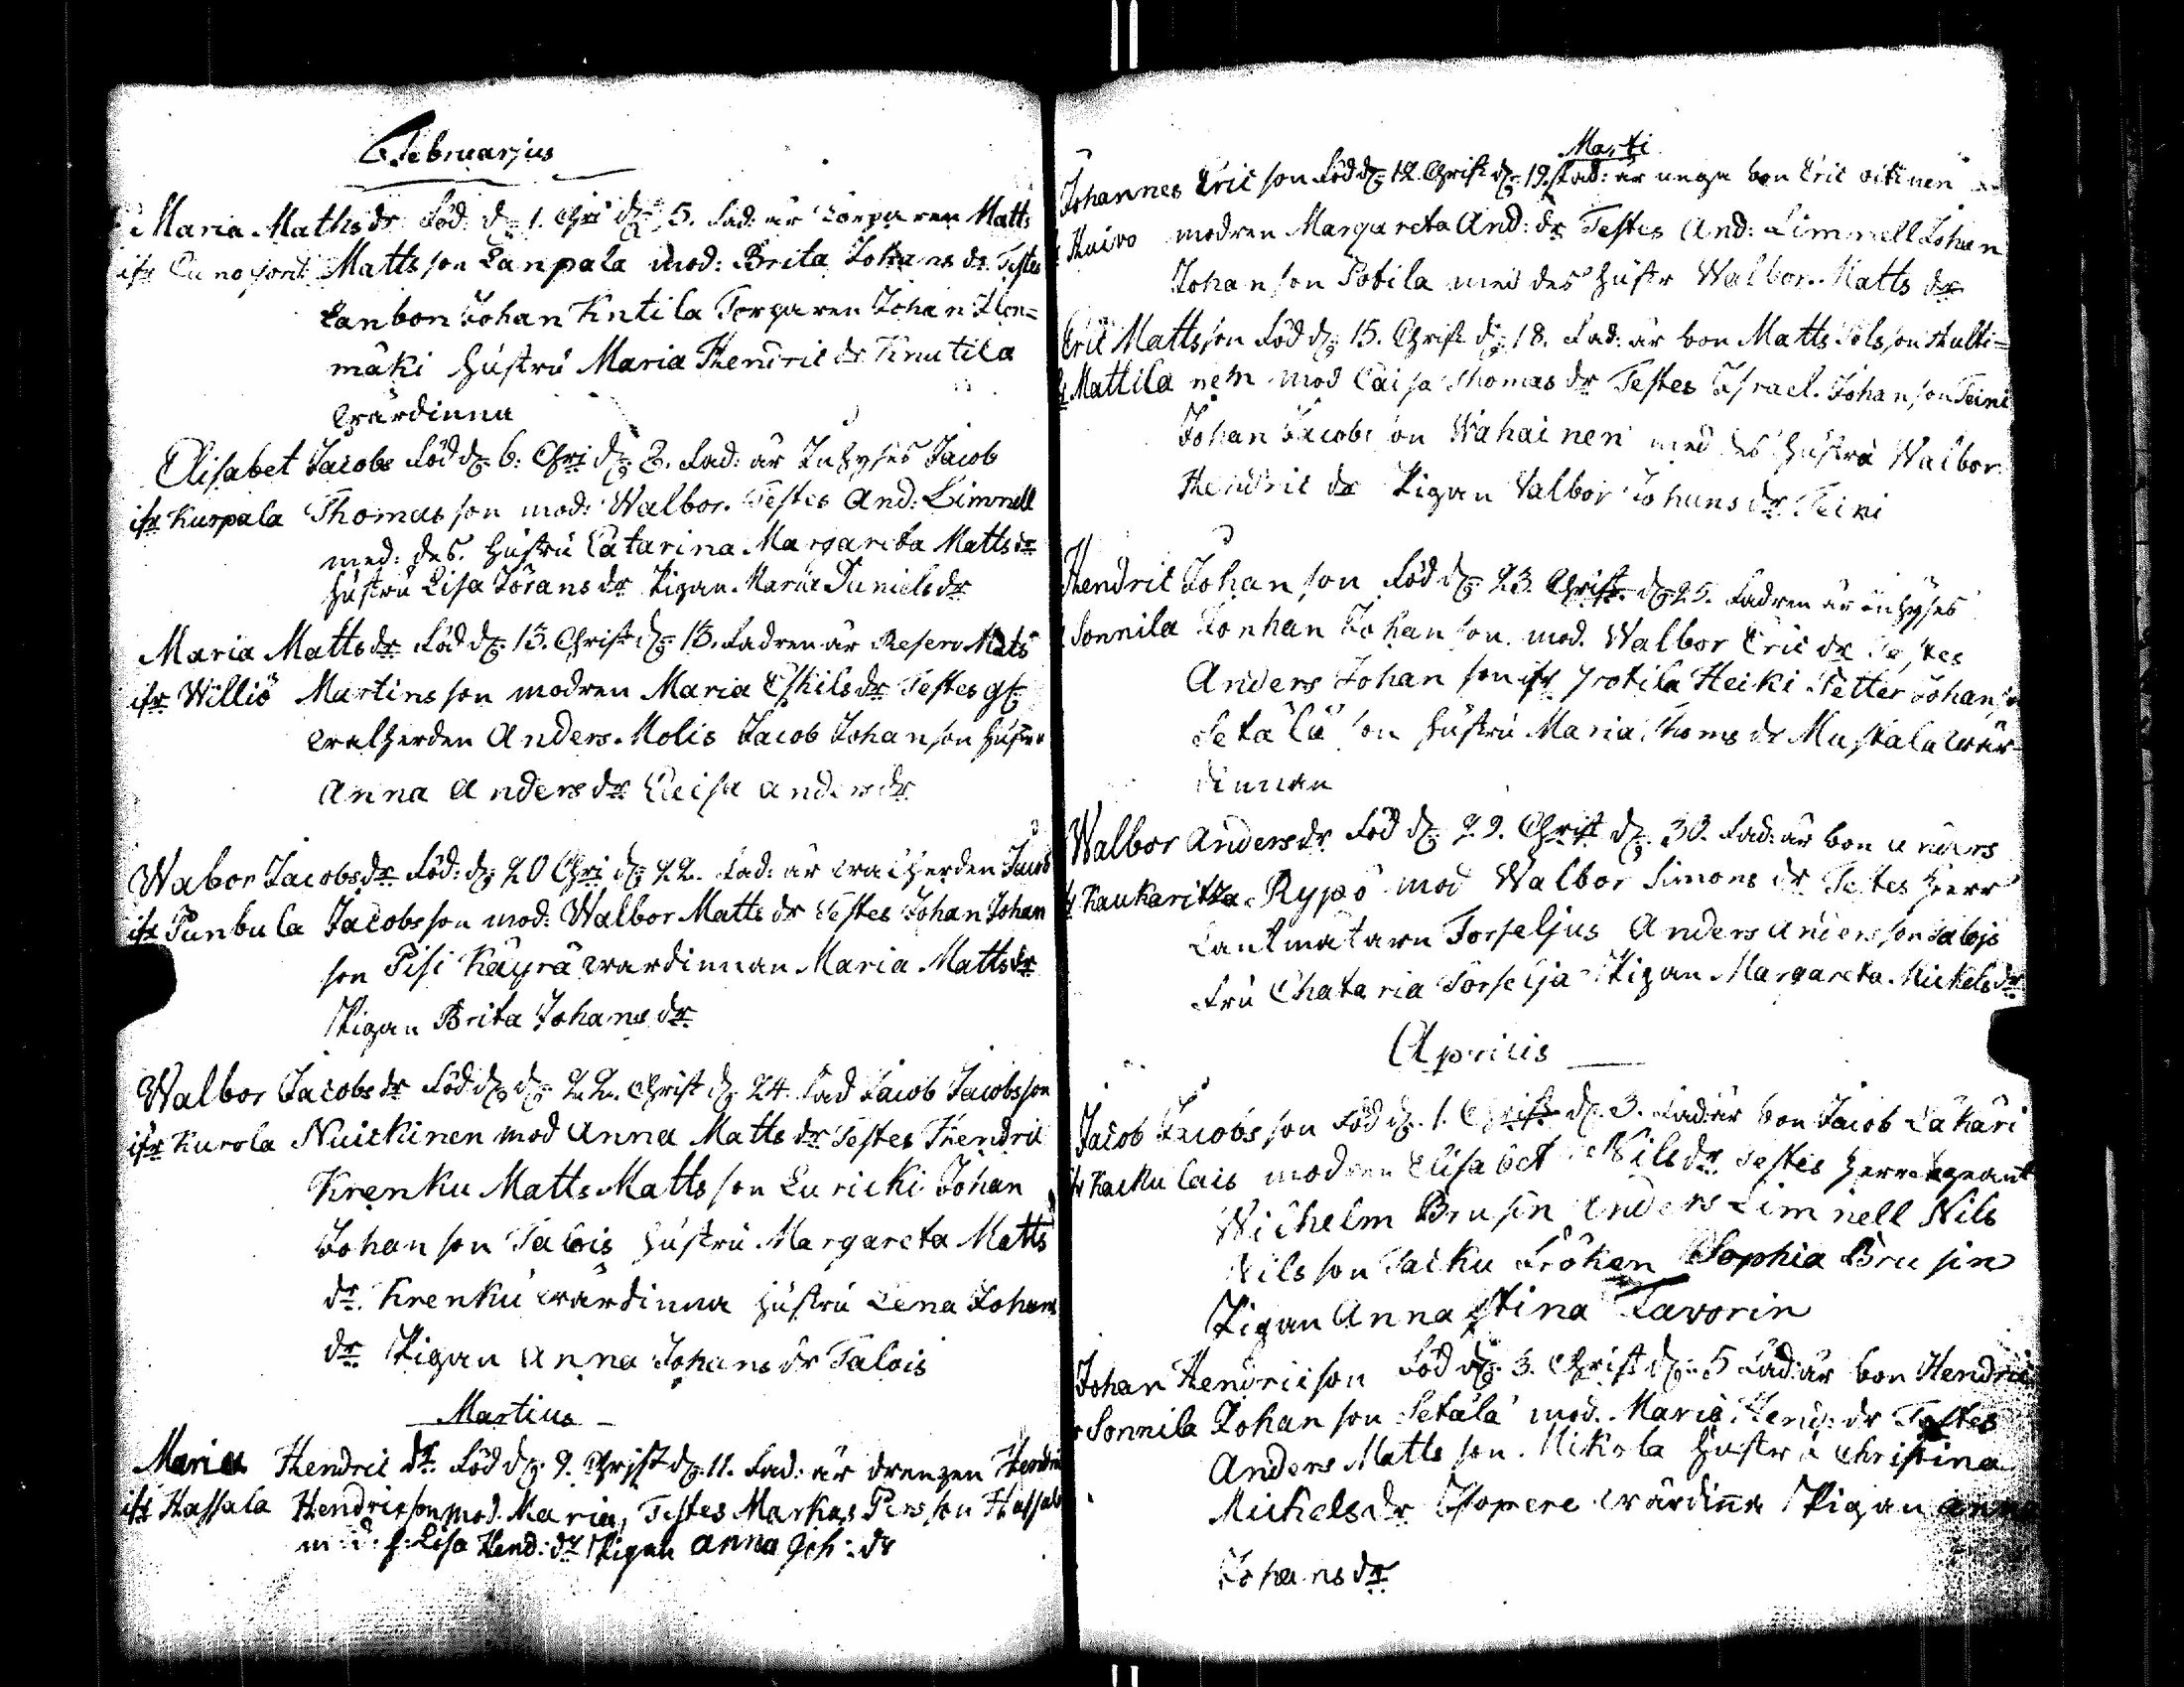 Februarjus
Maria Mathsdr Föd: d. 1. Chri d. 5. Fad: är Torparen Matts
ifr Matts son Lanpala mod: Brita Johans dr Testes
Lanbon Johan Kntila Torparen Johan
mäki hustru Maria Hendric dr Knutila
wärdinna
Elisabet Jacobs Föd d. 6: Chri d. 8. Fad: är Inhyses Jacob
ifr Kurpala Thomas son mod: Walbor. Testes And: Limnell
med: des. hustru Catarina Margareta Matts dr
hustru Lisa Jörans dr Pigan Maria Daniels dr
Maria Matts dr Föd d. 13. Christ d. 13. Fadren är Reserv Mats
ifr Williö Martins son modren Maria Eskils dr Testes gf.
Anders Molis Jacob Johan son hustru
Anna Anders dr Caisa Anders dr
Wabor Jacobs dr Föd: d. 20 Chri d. 22. Fad: är Jacob
ifr Punbula Jacobs son mod: Walbor Matts dr Testes Johan Johan
son Pisi Käyrä wärdinnan Maria Matts dr
Pigan Brita Johans dr
Walbor Jacobs dr Föd d. d. 22. Christ d. 24. Fad Jacob Jacobs son
ifr Kurola Nuickinen mod Anna Matts dr Testes Hendric
Krenku Matts Matts son Luricki Johan
Johan son Talois hustru Margareta Matts
dr. Krenku wärdinna hustru Lena Johans
dr Pigan Anna Johans dr Talois
Martius
Maria Hendric dr Föd d. 9. Christ d. 11. Fad: är drengen Hendric
ifr Hassala Hendricson mod. Maria, Testes Markus Persson Hassala
m: d: h: Lisa Hend: dr Pigan Anna Joh: dr
Marti
Johannes Eric son Föd d. 12. Christ d. 19. Fad: är unga bon Eric oitinen
Huivo modren Margareta And: dr Testes And: Limnell Johan
Johan son Potila med des hustr Walbor. Matts dr
Eric Matts son Föd d. 15. Christ d. 18. Fad: är bon Matts
Mattila nen mod Caisa Thomas dr Testes Israel. Johan son Teini
Johan Jacobs son Wahainen med des hustru Walbor
Hendric dr Pigan Valbor Johans dr Teini
Hendric Johan son Föd d. 23. Christ d. 25. Fadren är inhyses
Sonnila Jonhan Johan son. mod. Walbor Eric dr Testes
Anders Johan son ifr Heiki Petter Johan son
Setälä son hustru Maria Thoms dr Mustala wär
dinnan
Walbor Anders dr Föd d. 29. Christ d. 30. Fad: är bon anders
Kaukaritza Rypö mod Walbor Simons dr Testes Herr
Lantmätarn Forseljus Anders Anders son Talojs
Fru Chataria Forselja Pigan Margareta Mickels dr
Aprilis
Jacob Jacobs son Föd d. 1. Christ d. 3. Fad: är bon Jacob Lakari
modren Elisabet Nils dr Testes
Wilhelm Brusin Anders Limnell Nils
Nils son Fröken Sophia Brusin
Pigan Anna Stina Favorin
Johan Hendricson Föd d. 3. Christ d. 5 Fad: är bon Hendric
Sonnila Johan son Setälä mod. Maria Hend: dr Testes
Anders Matts son. Mikola hustru Christina
Mickels dr wärdinna Pigan Anna
Johans dr